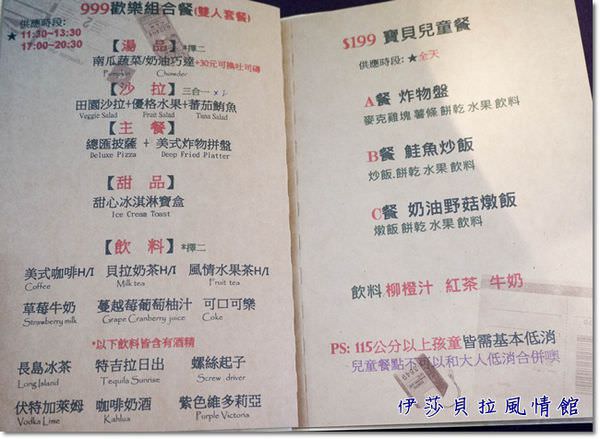 999歡樂組合餐(雙人套餐)
供應時段:
★ 11:30~13:30
17:00~20:30
【湯 品】*擇二
南瓜蔬菜/奶油巧達+30元可換吐司磚
Pumpkin Chowder
【沙 拉】三合一 x1
田園沙拉+優格水果+蕃茄鮪魚
Veggie Salad Fruit Salad Tuna Salad
【主 餐】
總匯披薩 + 美式炸物拼盤
Deluxe Pizza Deep Fried Platter
【甜 品】
甜心冰淇淋寶盒
Ice Cream Toast
【飲 料】*擇二
美式咖啡H/I 貝拉奶茶H/I 風情水果茶H/I
Coffee Milk tea Fruit tea
草莓牛奶 蔓越莓葡萄柚汁 可口可樂
Strawberry milk Grape Cranberry juice Coke
*以下飲料皆含有酒精
長島冰茶 特吉拉日出 螺絲起子
Long Island Tequila Sunrise Screw driver
伏特加萊姆 咖啡奶酒 紫色維多莉亞
Vodka Lime Kahlua Purple Victoria
$199 寶貝兒童餐
供應時段: ★全天
A餐 炸物盤
麥克雞塊 薯條 餅乾 水果 飲料
B餐 鮭魚炒飯
炒飯.餅乾 水果 飲料
C餐 奶油野菇燉飯
燉飯 餅乾 水果 飲料
飲料 柳橙汁 紅茶 牛奶
PS: 115公分以上孩童 皆需基本低消
兒童餐點不可以和大人低消合併噢
伊莎貝拉風情館